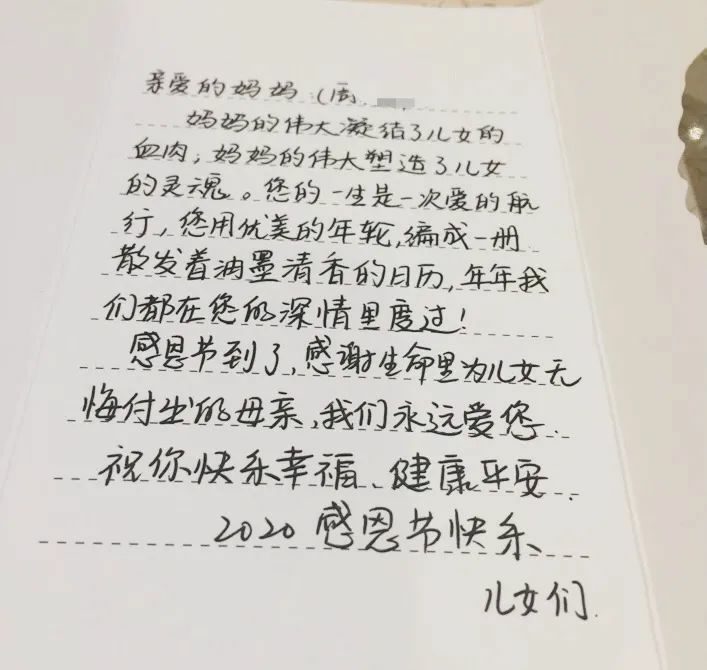 亲爱的妈妈:(周
妈妈的伟大凝结了儿女的
血肉;妈妈的伟大塑造了儿女
的灵魂。您的一生是一次爱的航
行,您用优美的年轮,编成一册
散发着油墨清香的日历,年年我
们都在您的深情里度过!
感恩节到了,感谢生命里为儿女无
悔付出的母亲,我们永远爱您.
祝你快乐幸福、健康平安.
2020感恩节快乐
儿女们.